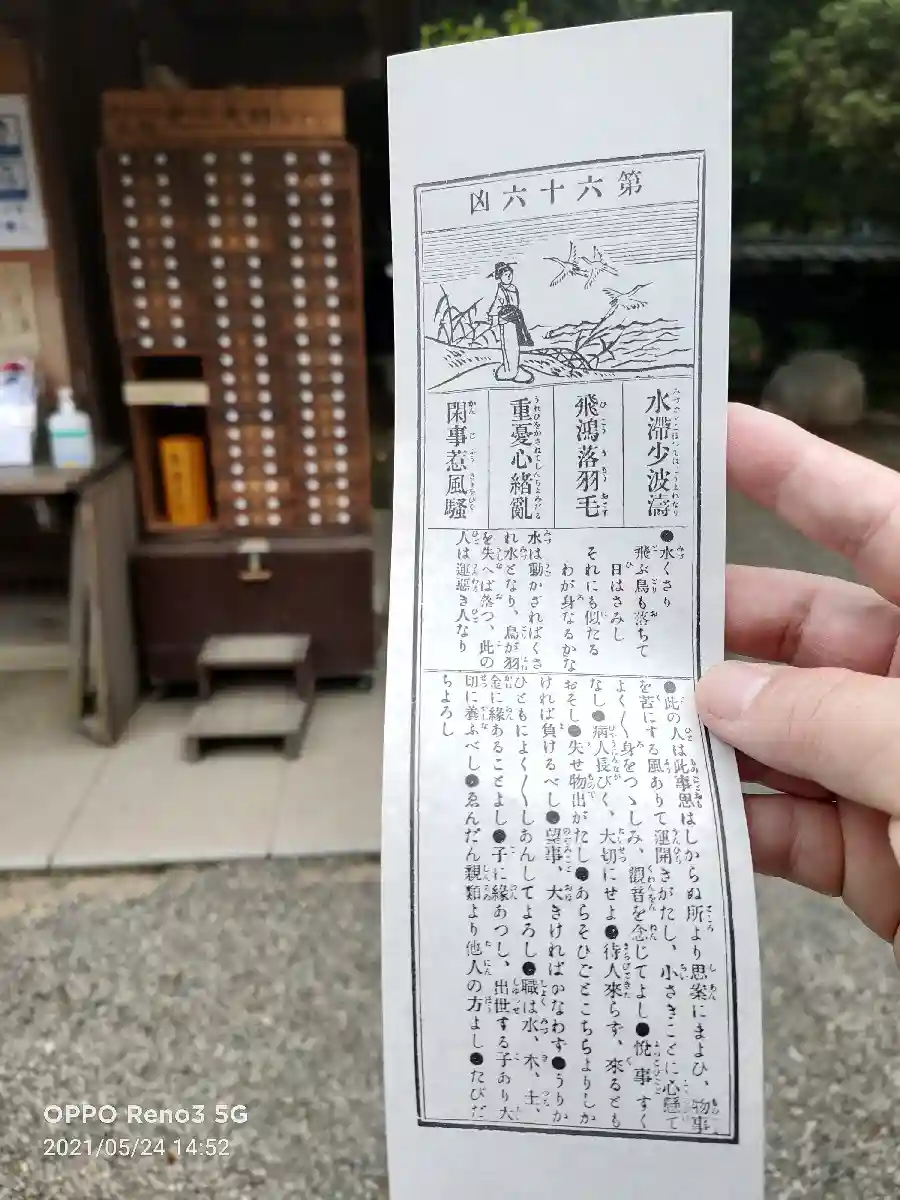 第六十六凶
水滯少波濤
飛鴻落羽毛
重憂心緒亂
閑事惹風騷
●水くさり
飛ぶ鳥も落ちて
日はさみし
それにも似たる
わが身なるかな
水は動かざればくさ
れ水となり、鳥が羽
を失へば落つ、此の
人は運惡き人なり
●此の人は此事思はしからぬ所より思案にまよひ、物事
を苦にする風ありて運開きがたし、小さきことに心懸て
よく〱身をつゝしみ、觀音を念じてよし●悅事すく
なし●病人長びく、大切にせよ●待人來らず、來るとも
おそし●失せ物出がたし●あらそひごとこちらよりしか
ければ負けるべし●望事、大きければかなわず●うりか
ひともによく〱しあんしてよろし●職は水、木、土、
金に緣あることよし●子に緣あつし、出世する子あり大
切に養ふべし●ゑんだん親類より他人の方よし●たびだ
ちよろし
OPPO Reno3 5G
2021/05/24 14:52